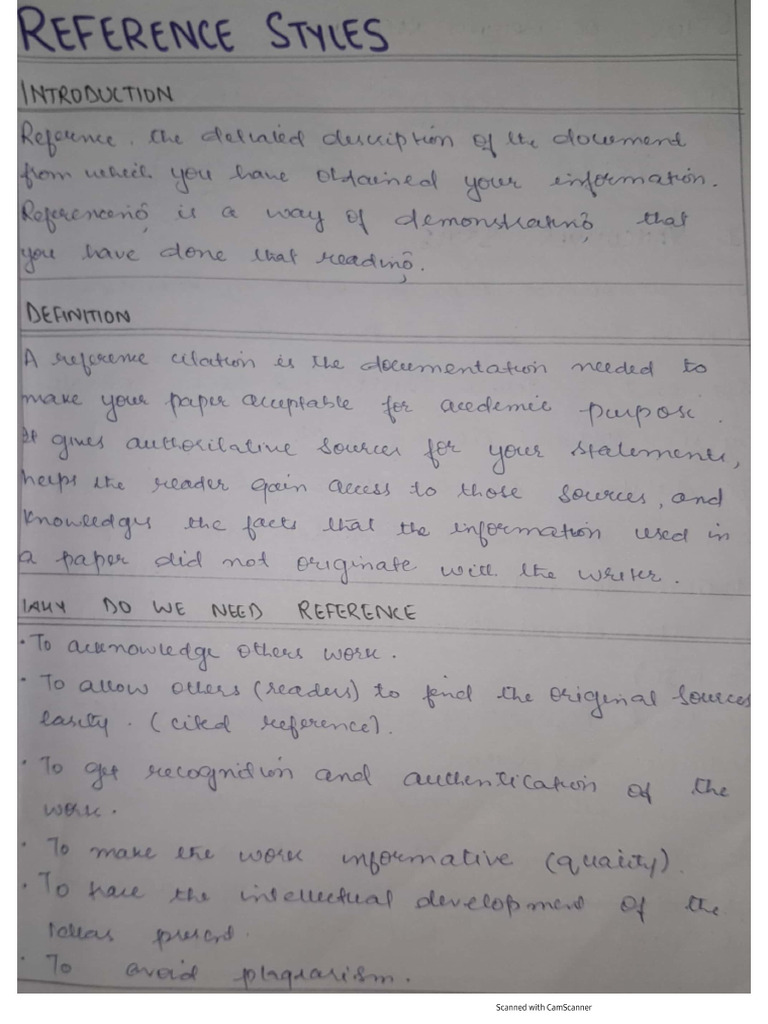 REFERENCE STYLES
INTRODUCTION
Reference, the detailed description of the document
from which you have obtained your information.
Referencing is a way of demonstrating that
you have done that reading.
DEFINITION
A reference citation is the documentation needed to
make your paper acceptable for acedemic purpose.
It gives authoritative sources for your statements,
helps the reader gain access to those sources, and
knowledges the facts that the information used in
a paper did not originate with the writer.
WHY DO WE NEED REFERENCE
• To acknowledge others work.
• To allow others (readers) to find the original sources
easily. (cited reference).
• To get recognition and authentication of the
work.
• To make the work informative (quality).
• To trace the intellectual development of the
ideas present.
• To avoid plagiarism.
Scanned with CamScanner